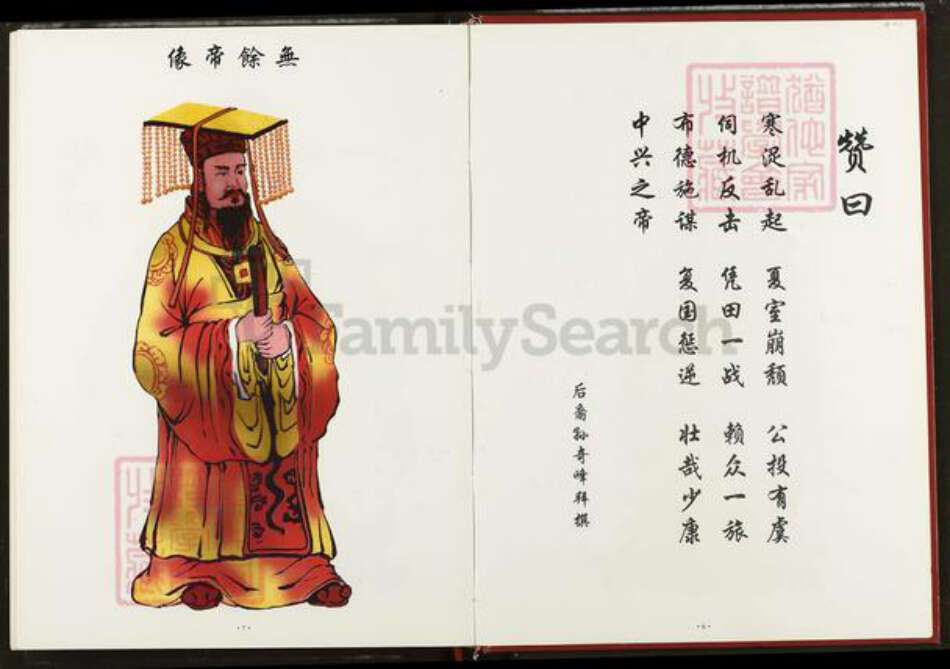 赞曰
寒浞乱起 夏室崩颓 公投有虞
伺机反击 凭田一战 赖众一旅
布德施谋 复国惩逆 壮哉少康
中兴之帝
后裔孙奇峰拜撰
猶他家
譜學會
無餘帝像
FamilySearch